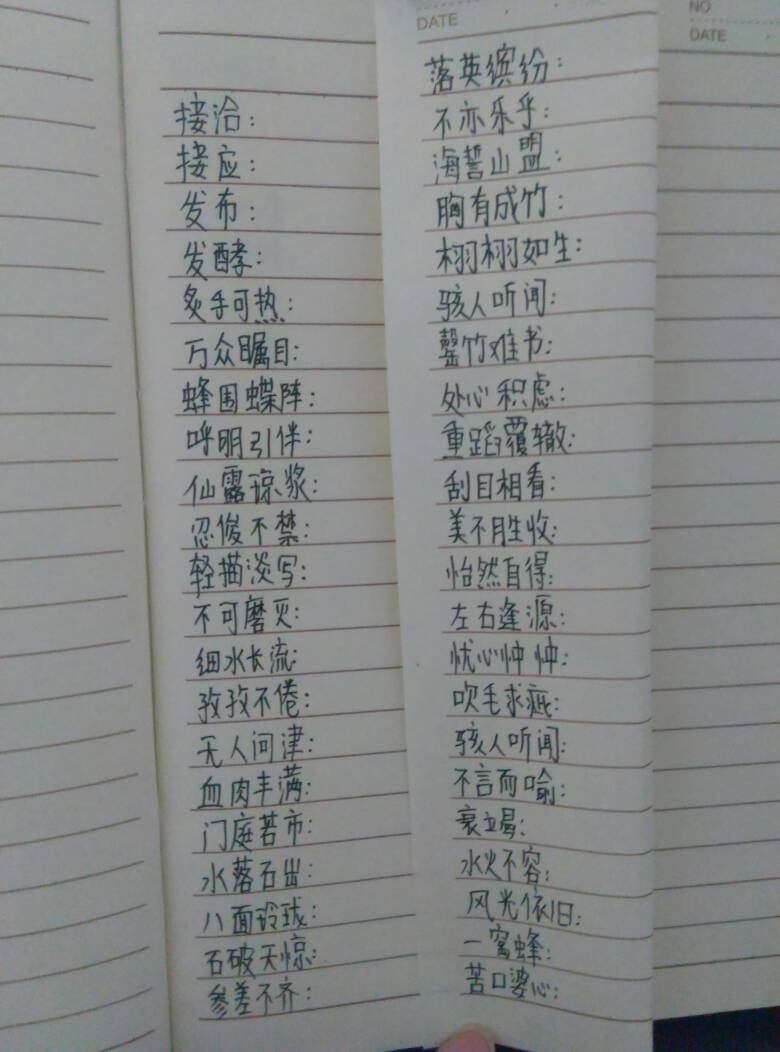 接洽：
接应：
发布：
发酵：
炙手可热：
万众瞩目：
蜂围蝶阵：
呼朋引伴：
仙露琼浆：
忍俊不禁：
轻描淡写：
不可磨灭：
细水长流：
孜孜不倦：
无人问津：
血肉丰满：
门庭若市：
水落石出：
八面玲珑：
石破天惊：
参差不齐：
DATE
落英缤纷：
不亦乐乎：
海誓山盟：
胸有成竹：
栩栩如生：
骇人听闻：
罄竹难书：
处心积虑：
重蹈覆辙：
刮目相看：
美不胜收：
怡然自得：
左右逢源：
忧心忡忡：
吹毛求疵：
骇人听闻：
不言而喻：
衰竭：
水火不容：
风光依旧：
一窝蜂：
苦口婆心：
NO
DATE